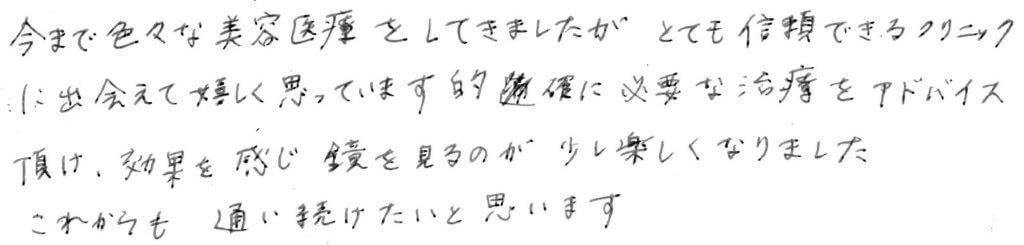 今まで色々な美容医療をしてきましたが とても信頼できるクリニック
に出会えて嬉しく思っています 的確に必要な治療をアドバイス
頂け、効果を感じ 鏡を見るのが 少し楽しくなりました
これからも 通い続けたいと思います